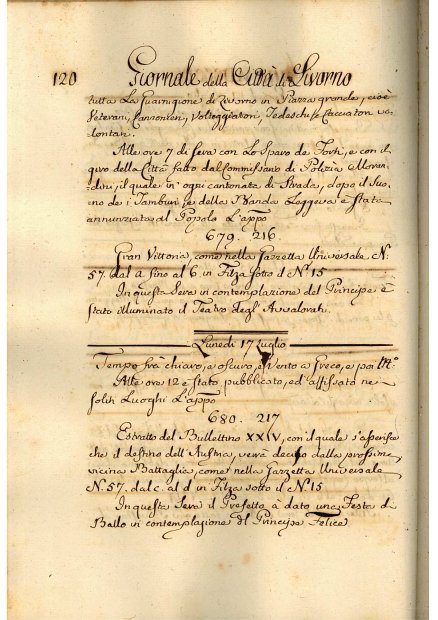 120 Giornale della Città di Livorno
tutta La Guarnigione di Livorno in Piazza grande, cioè
Veterani, Cannonieri, Volteggiatori, Tedeschi, e Cacciatori vo-
lontari.
Alle ore 7 di sera con Lo Sparo de Forti, e con il
giro della Città fatto dal Commissario di Polizia Moran-
dini, il quale in ogni cantonata di Strada, dopo il Suo,
no de i Tamburi, e della Banda Leggeva è stata
annunziata al Popolo L'appo
679. 216.
Gran Vittoria, come nella Gazzetta Universale N:
57. dal a fino al b in Filza sotto il N.º 15
In questa Sera in contemplazione del Principe è
stato illuminato il Teatro degl'Avvalorati.
Lunedì 17 Luglio
Tempo frà chiaro, e oscuro, e vento a Greco, e poi
Alle ore 12 è stato pubblicato, ed'affissato ne
soliti Luoghi L'appo
680. 217
Estratto del Bullettino XXIV, con il quale s'asserisce
che il destino dell'Austria, verrà deciso dalla prossima
vicina Battaglia, come nella Gazzetta Universale
N. 57. dal c. al d in Filza sotto il N.º 15
In questa Sera il Prefetto à dato una Festa di
Ballo in contemplazione del Principe Felice